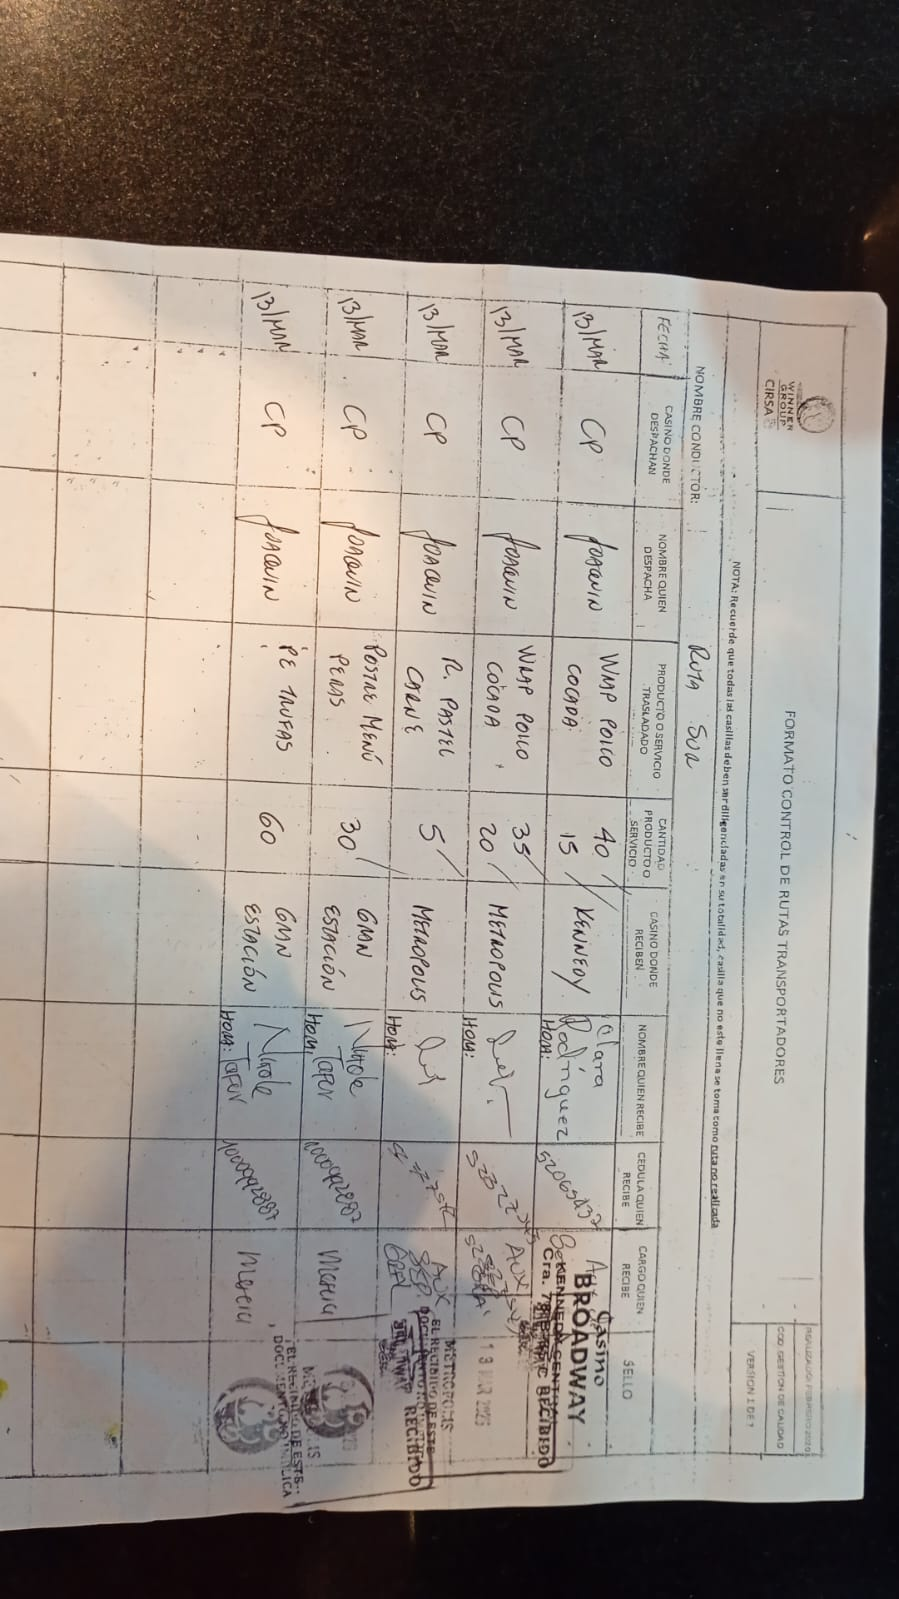 WINNER
GROUP
CIRSA
FORMATO CONTROL DE RUTAS TRANSPORTADORES
REALIZADO: FEBRERO 2020
COD. GESTION DE CALIDAD
VERSION 1 DE 1
NOTA: Recuerde que todas las casillas deben ser diligenciadas en su totalidad, casilla que no este llena se toma como ruta no realizada
NOMBRE CONDUCTOR: RUTA SUR
FECHA
CASINO DONDE
DESPACHAN
NOMBRE QUIEN
DESPACHA
PRODUCTO O SERVICIO
TRASLADADO
CANTIDAD
PRODUCTO O
SERVICIO
CASINO DONDE
RECIBEN
NOMBRE QUIEN RECIBE
CEDULA QUIEN
RECIBE
CARGO QUIEN
RECIBE
SELLO
13/MAR
CP
JOAQUIN
WRAP POLLO
COCADA
40
15
KENNEDY
Clara
Rodríguez
HORA:
Casino
BROADWAY
RECIBIDO
13/MAR
CP
JOAQUIN
WRAP POLLO
COCADA
35
20
METROPOLIS
HORA:
AUX
13 MAR 2025
13/MAR
CP
JOAQUIN
R. PASTEL
CARNE
5
METROPOLIS
HORA:
AUX
METROPOLIS
EL RECIBIDO DE ESTE
RECIBIDO
13/MAR
CP
JOAQUIN
POSTRE MENÚ
PERAS
30
GRAN
ESTACIÓN
HORA:
1000992887
13/MAR
CP
JOAQUIN
PE TRUFAS
60
GRAN
ESTACIÓN
HORA:
1000992887
EL RECIBIDO DE ESTE